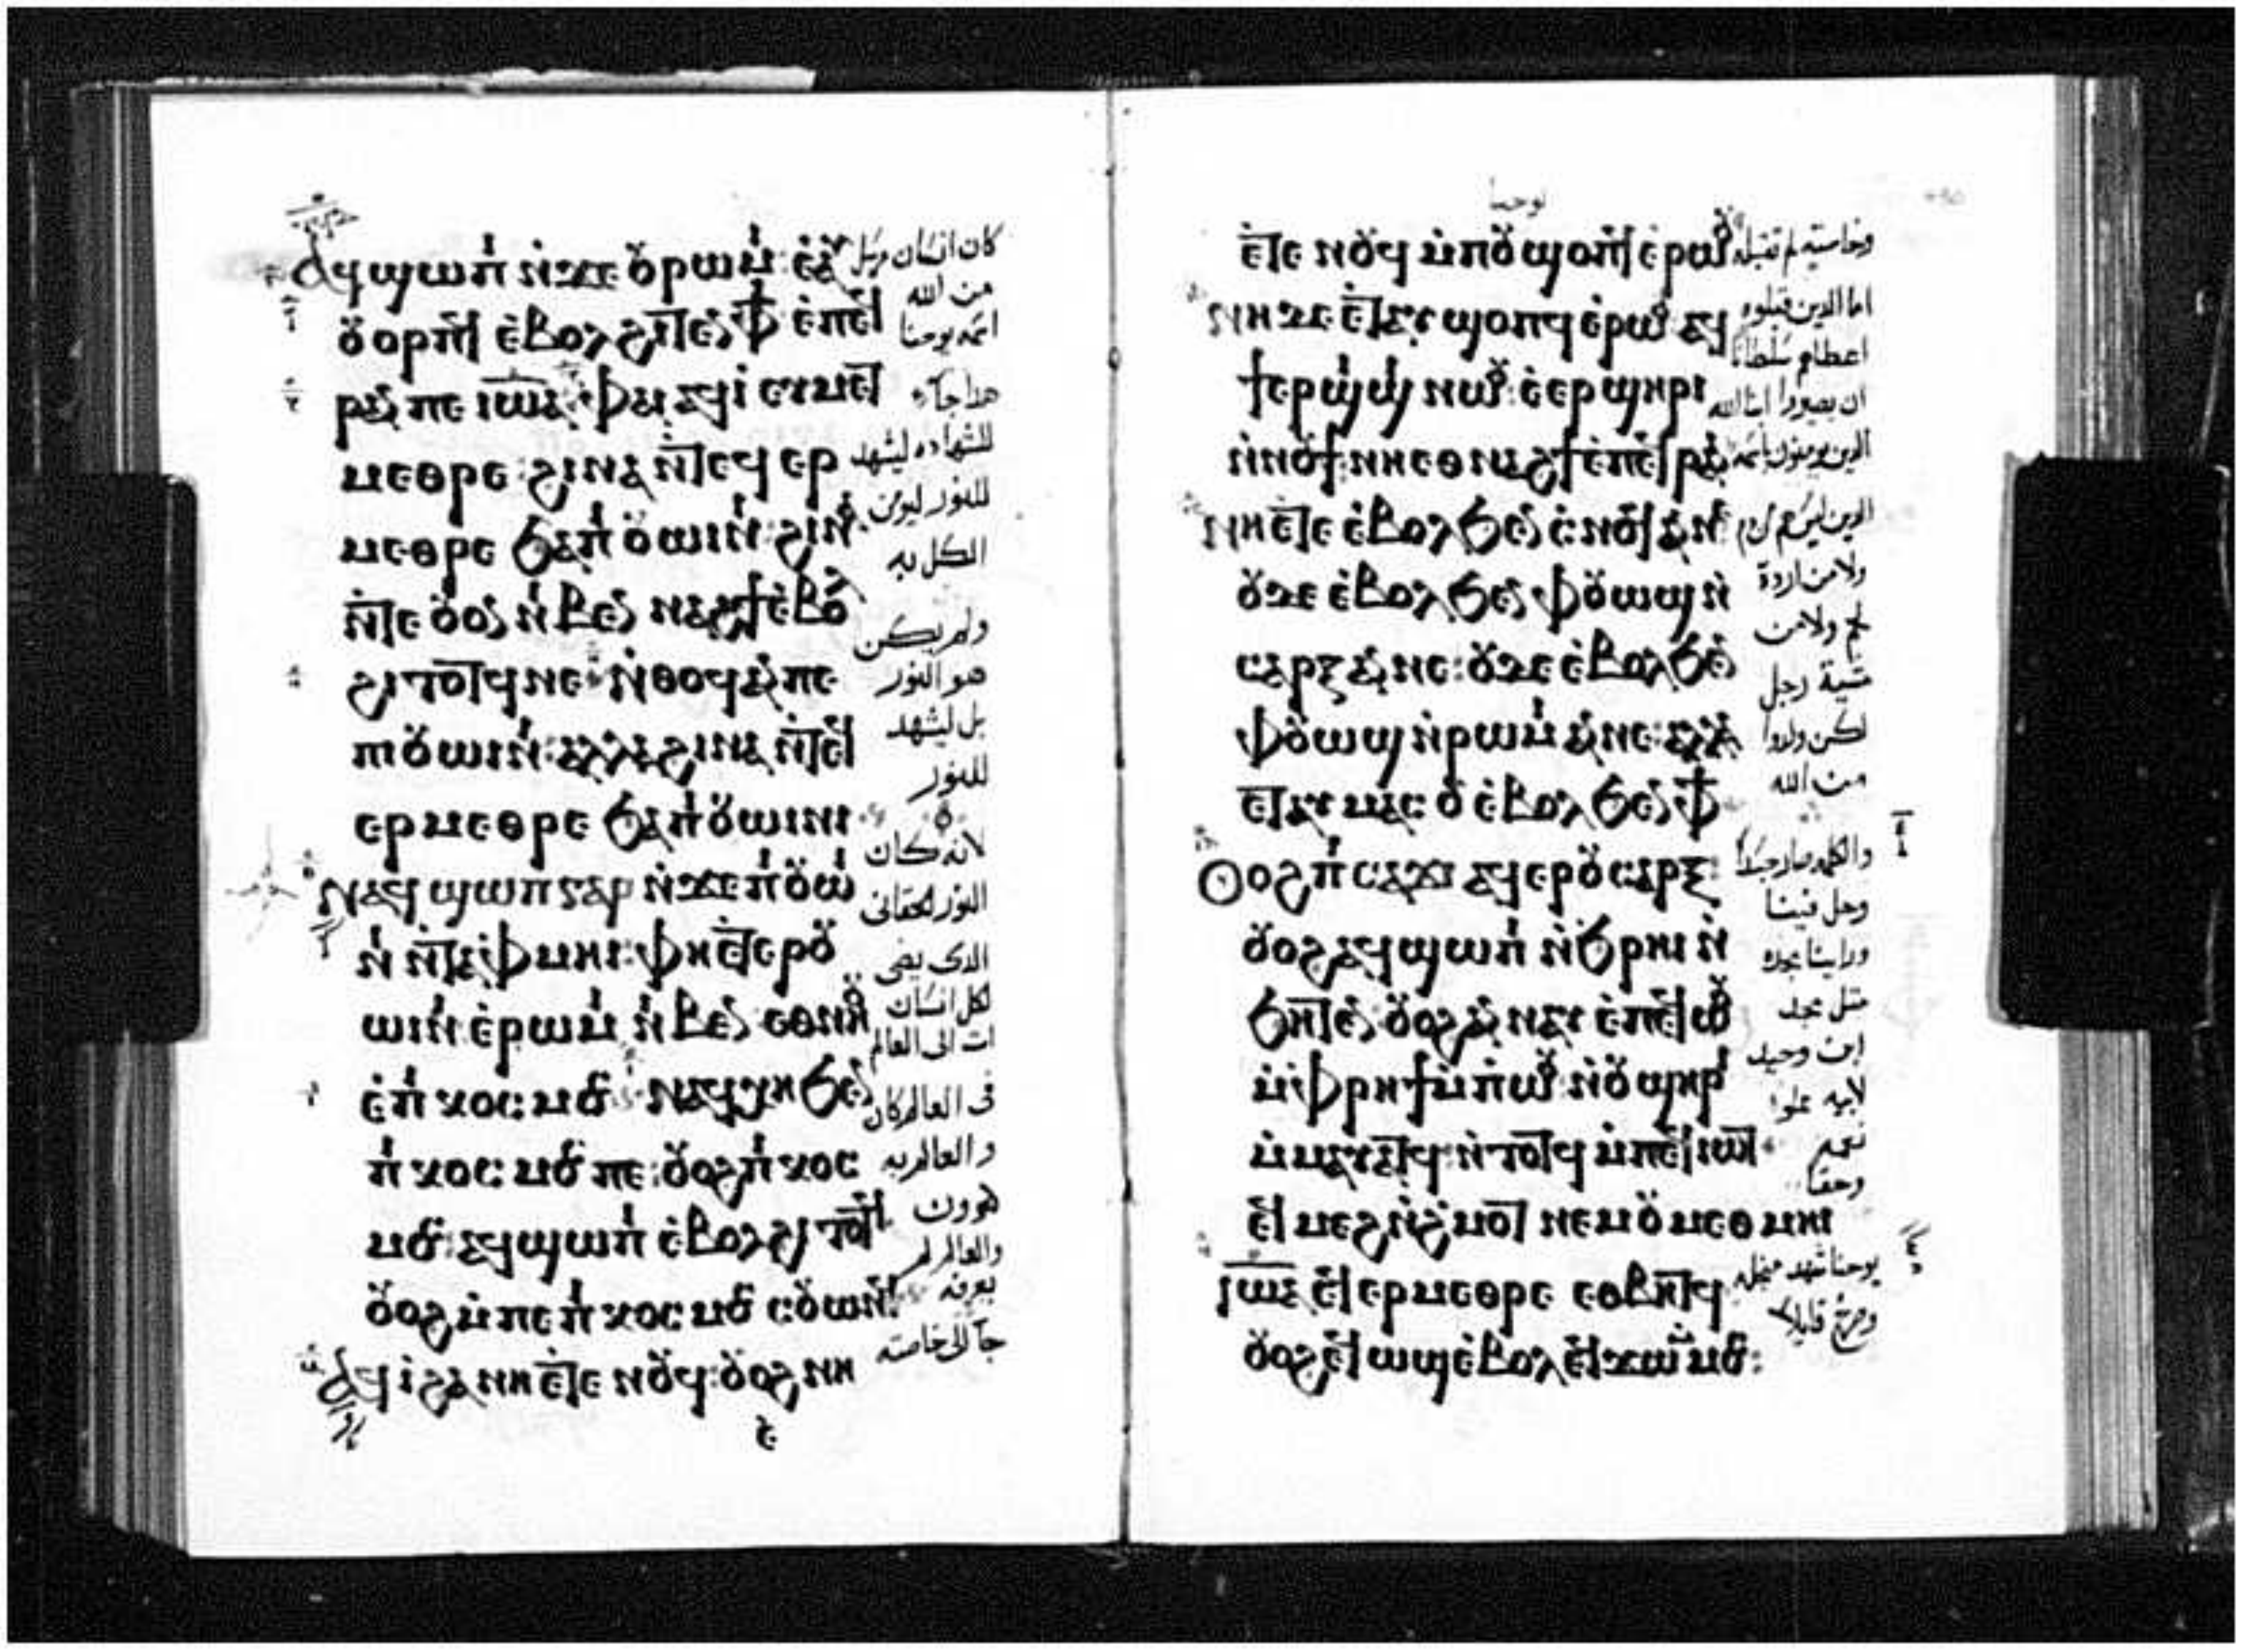 ⲁϥϣⲱⲡⲓ ⲛ̇ϫⲉ ⲟⲩⲣⲱⲙⲓ: ⲉ̇ⲁⲩ
ⲟⲩⲟⲣⲡϥ ⲉ̇ⲃⲟⲗϩⲓⲧⲉⲛ ⲫϯ ⲉ̇ⲡⲉϥ
ⲣⲁⲛ ⲡⲉ ⲓⲱⲁ: ⲫⲁⲓ ⲁϥⲓ̇ ⲉⲩⲙⲉⲧ
ⲙⲉⲑⲣⲉ: ϩⲓⲛⲁ ⲛ̇ⲧⲉϥ ⲉⲣ
ⲙⲉⲑⲣⲉ ϧⲁ ⲡⲓⲟⲩⲱⲓⲛⲓ: ϩⲓⲛⲁ
ⲛ̇ⲧⲉ ⲟⲩⲟⲛ ⲛⲓⲃⲉⲛ ⲛⲁϩϯ ⲉ̇ⲃⲟⲗ
ϩⲓⲧⲟⲧϥ ⲛⲉ ⲛ̇ⲑⲟϥ ⲁⲛ ⲡⲉ
ⲡⲓⲟⲩⲱⲓⲛⲓ: ⲁⲗⲗⲁ ϩⲓⲛⲁ ⲛ̇ⲧⲉϥ
ⲉⲣⲙⲉⲑⲣⲉ ϧⲁ ⲡⲓⲟⲩⲱⲓⲛⲓ
ⲛⲁϥϣⲱⲡ ⲅⲁⲣ ⲛ̇ϫⲉ ⲡⲓⲟⲩⲱⲓ
ⲛⲓ ⲛ̇ⲧⲁⲫⲙⲏⲓ: ⲫⲏⲉⲧⲉⲣⲟⲩ
ⲱⲓⲛⲓ ⲉ̇ⲣⲱⲙⲓ ⲛⲓⲃⲉⲛ ⲉⲑⲛⲏⲟⲩ
ⲉ̇ⲡⲓⲕⲟⲥⲙⲟⲥ ⲛⲁϥⲭⲏ ϧⲉⲛ
ⲡⲓⲕⲟⲥⲙⲟⲥ ⲡⲉ: ⲟⲩⲟϩ ⲡⲓⲕⲟⲥ
ⲙⲟⲥ: ⲁϥϣⲱⲡⲓ ⲉ̇ⲃⲟⲗϩⲓⲧⲟⲧϥ
ⲟⲩⲟϩ ⲙ̇ⲡⲉ ⲡⲓⲕⲟⲥⲙⲟⲥ ⲥⲟⲩⲱⲛϥ
ⲁϥⲓ̇ ϩⲁ ⲛⲏⲉ̇ⲧⲉ ⲛⲟⲩϥ: ⲟⲩⲟϩ ⲛⲏ
كان انسان مرسل
من الله
اسمه يوحنا
هذا جآء
للشهاده ليشهد
للنور ليومن
الكل به
ولم يكن
هو النور
بل ليشهد
للنور
لانه كان
النور الحقانى
الدى يضى
لكل انسان
ات الى العالم
فى العالم كان
والعالم به
كون
والعالم لم
يعرفه
جآ الى خاصته
يوحنا
ⲉ̇ⲧⲉ ⲛⲟⲩϥ ⲙ̇ⲡⲟⲩϣⲟⲡϥ ⲉ̇ⲣⲱⲟⲩ
ⲛⲏ ⲇⲉ ⲉ̇ⲧⲁⲩϣⲟⲡϥ ⲉ̇ⲣⲱⲟⲩ ⲁϥ
ϯⲉⲣϣⲓϣⲓ ⲛⲱⲟⲩ: ⲉ̇ⲉⲣϣⲏⲣⲓ
ⲛ̇ⲛⲟⲩϯ: ⲛⲏⲉⲑⲛⲁϩϯ ⲉ̇ⲡⲉϥⲣⲁⲛ
ⲛⲏⲉ̇ⲧⲉ ⲉ̇ⲃⲟⲗϧⲉⲛ ⲥⲛⲟϥ ⲁⲛ ⲛⲉ
ⲟⲩⲇⲉ ⲉ̇ⲃⲟⲗϧⲉⲛ ⲫⲟⲩⲱϣ ⲛ̇
ⲥⲁⲣⲝ ⲁⲛ ⲛⲉ: ⲟⲩⲇⲉ ⲉ̇ⲃⲟⲗϧⲉⲛ
ⲫⲟⲩⲱϣ ⲛ̇ⲣⲱⲙⲓ ⲁⲛ ⲛⲉ: ⲁⲗⲗⲁ
ⲉ̇ⲧⲁⲩⲙⲁⲥⲟⲩ ⲉ̇ⲃⲟⲗϧⲉⲛ ⲫϯ
ⲟⲩⲟϩ ⲡⲓⲥⲁϫⲓ ⲁϥⲉⲣⲟⲩⲥⲁⲣⲝ:
ⲟⲩⲟϩ ⲁϥϣⲱⲡⲓ ⲛ̇ϧⲣⲏⲓ ⲛ̇
ϧⲏⲧⲉⲛ: ⲟⲩⲟϩ ⲁⲛⲛⲁⲩ ⲉ̇ⲡⲉϥⲱⲟⲩ
ⲙ̇ⲫⲣⲏϯ ⲙ̇ⲡⲓⲱⲟⲩ ⲛ̇ⲟⲩϣⲏⲣⲓ
ⲙ̇ⲙⲁⲩⲁⲧϥ: ⲛ̇ⲧⲟⲧϥ ⲙ̇ⲡⲉϥⲓⲱⲧ
ⲉϥⲙⲉϩ ⲛ̇ϩ̇ⲙⲟⲧ ⲛⲉⲙ ⲟⲩⲙⲉⲑⲙⲏⲓ
ⲓⲱⲁ ϥⲉⲣⲙⲉⲑⲣⲉ ⲉⲑⲃⲏⲧϥ
ⲟⲩⲟϩ ϥⲱϣ ⲉ̇ⲃⲟⲗ ⲉϥϫⲱ ⲙ̇ⲙⲟⲥ:
وخاصته لم تقبله
اما الدين قبلوه
اعطاهم سلطانا
ان يصيروا ابنا الله
الدين يومنون باسمه
الدين ليس هم من دم
ولا من ارادة
لحم ولا من
مشية رجل
لكن ولدوا
من الله
والكلمه صار جسدا
وحل فينا
وراينا مجده
مثل مجد
ابن وحيد
لابيه مملوا
نعمه
وحقا
يوحنا شهد من اجله
وصرخ قايلا